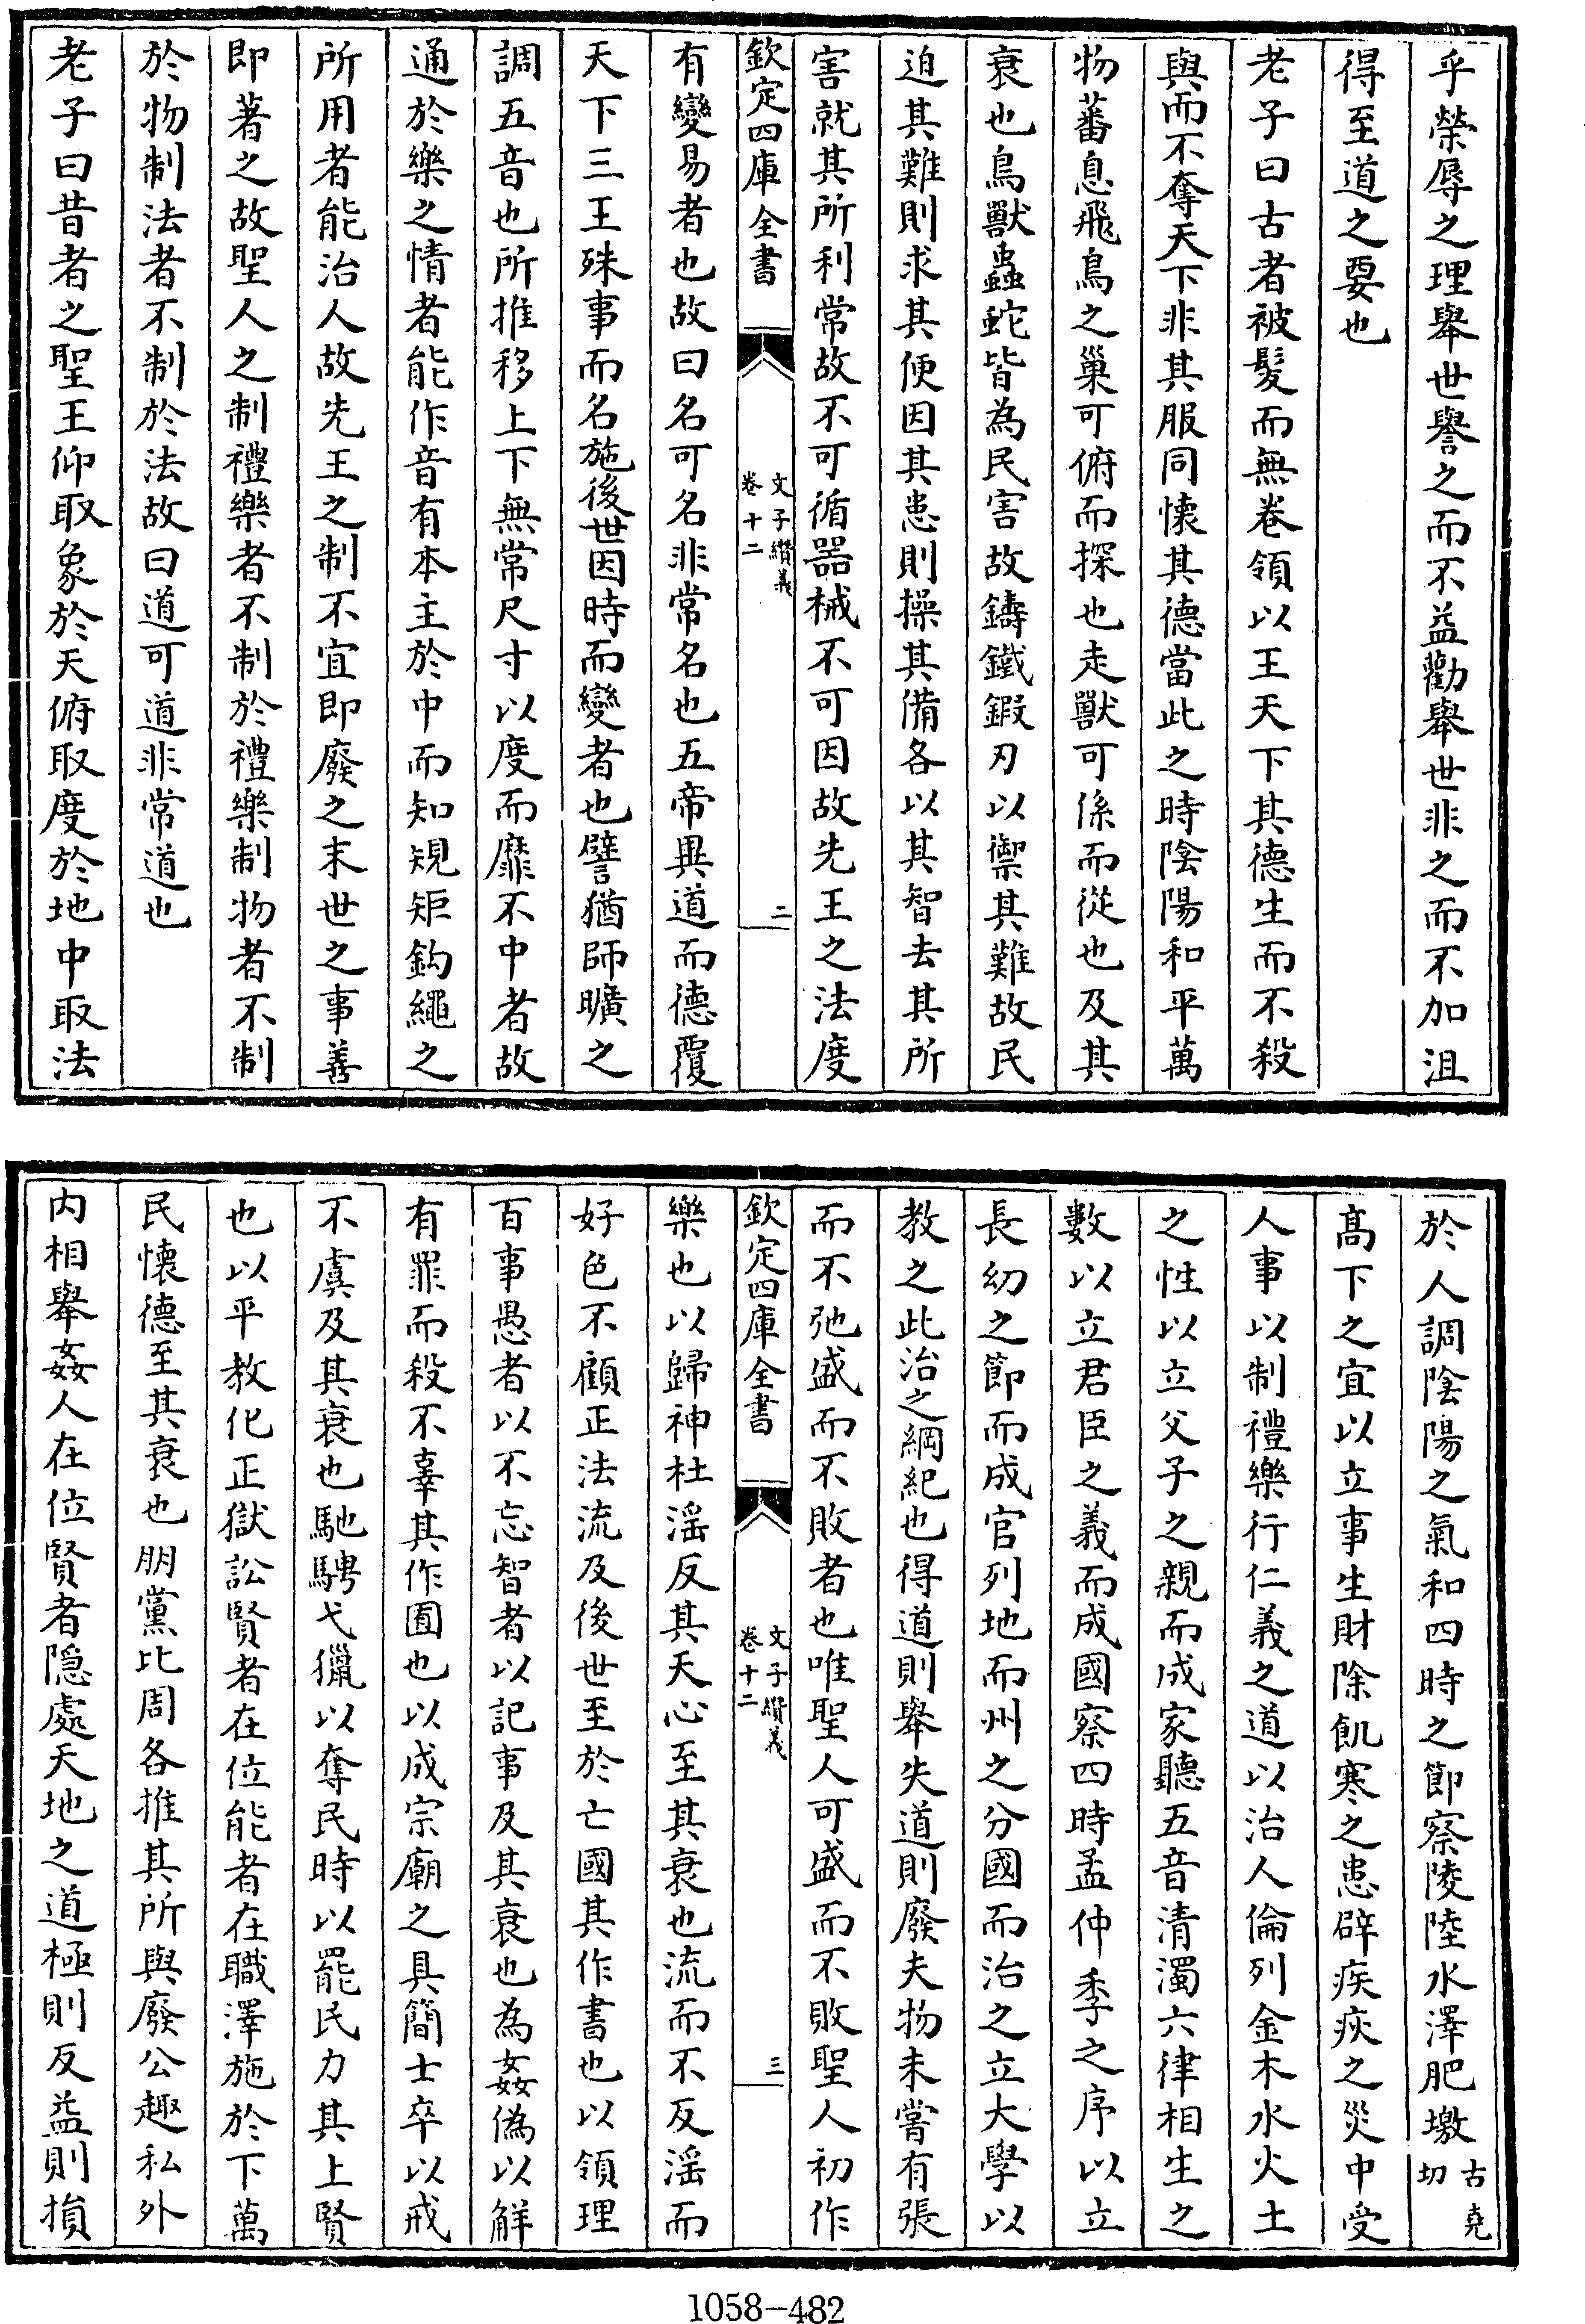 乎榮辱之理舉世譽之而不益勸舉世非之而不加沮
得至道之要也
老子曰古者被髮而無卷領以王天下其德生而不殺
與而不奪天下非其服同懷其德當此之時陰陽和平萬
物蕃息飛鳥之巢可俯而探也走獸可係而從也及其
衰也鳥獸蟲蛇皆為民害故鑄鐵鍛刃以禦其難故民
迫其難則求其便因其患則操其備各以其智去其所
害就其所利常故不可循器械不可因故先王之法度
欽定四庫全書
文子纘義
卷十二
二
有變易者也故曰名可名非常名也五帝異道而德覆
天下三王殊事而名施後世因時而變者也譬猶師曠之
調五音也所推移上下無常尺寸以度而靡不中者故
通於樂之情者能作音有本主於中而知規矩鈎繩之
所用者能治人故先王之制不宜即廢之末世之事善
即著之故聖人之制禮樂者不制於禮樂制物者不制
於物制法者不制於法故曰道可道非常道也
老子曰昔者之聖王仰取象於天俯取度於地中取法
於人調陰陽之氣和四時之節察陵陸水澤肥墽古堯切
高下之宜以立事生財除飢寒之患辟疾疢之災中受
人事以制禮樂行仁義之道以治人倫列金木水火土
之性以立父子之親而成家聽五音清濁六律相生之
數以立君臣之義而成國察四時孟仲季之序以立
長幼之節而成官列地而州之分國而治之立大學以
教之此治之綱紀也得道則舉失道則廢夫物未嘗有張
而不弛盛而不敗者也唯聖人可盛而不敗聖人初作
欽定四庫全書
文子纘義
卷十二
三
樂也以歸神杜淫反其天心至其衰也流而不反淫而
好色不顧正法流及後世至於亡國其作書也以領理
百事愚者以不忘智者以記事及其衰也為姦偽以解
有罪而殺不辜其作囿也以成宗廟之具簡士卒以戒
不虞及其衰也馳騁弋獵以奪民時以罷民力其上賢
也以平教化正獄訟賢者在位能者在職澤施於下萬
民懷德至其衰也朋黨比周各推其所與廢公趣私外
内相舉姦人在位賢者隱處天地之道極則反益則損
1058-482